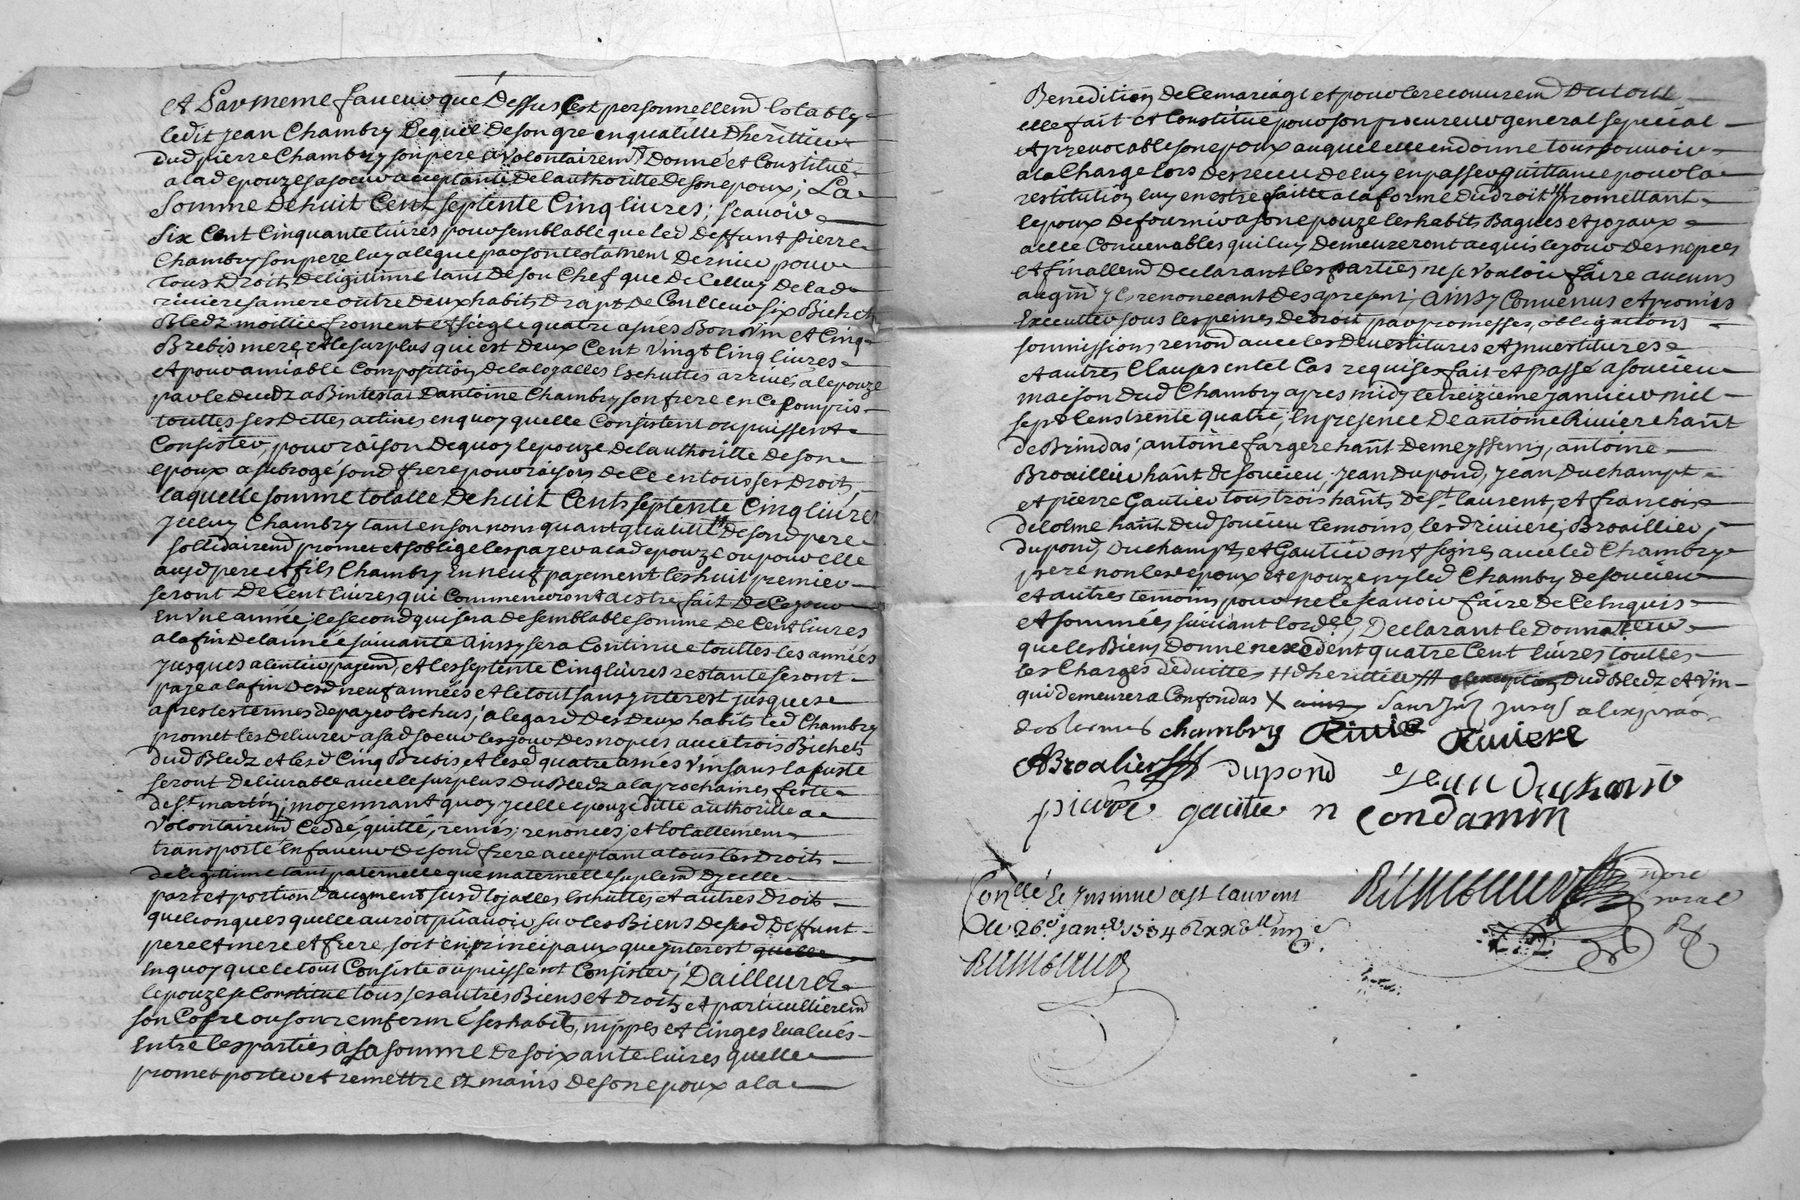 Et Par meme faveur que Dessus sest personnellemt Estably
ledit jean Chambry Lequel de son gre en qualitte D'herittier
dud pierre Chambry son pere a Volontairemt Donné et Constitué
a lad epouze sa soeur acceptante de l'authoritte de son epoux; La
Somme De huit Cent septente Cinq livres; scavoir
Six Cent Cinquante livres pour semblable que led deffunt pierre
Chambry son pere luy a legue par son testament Dernier pour
tous Droits De ligitime tant de son Chef que de Celluy de lad
riviere sa mere outre deux habits drapt de Coulleur six Bichets
Bledz moitie froment et seigle quatre asnés Bon Vin et Cinq
Brebis mere, et le surplus qui est Deux Cent Vingt Cinq livres
et pour amiable Composition de la loyalles Eschuttes arrivés a lepouze
par le decedz abintestat Dantoine Chambry son frere en Ce Compris
touttes ses Dettes actives en quoy quelle Consistent ou puissent
Consister, pour raison de quoy lepouze de lauthoritte de son
epoux a subrogé sond frere pour raison de Ce en tous ses droits,
laquelle somme totalle De huit Cent septente Cinq livres
Jcelluy Chambry tant en son nom quant qualitté de sond pere
sollidairemt promet et soblige les payer a lad epouze ou pour elle
ausd pere et fils Chambry en neuf payement les huit premier
seront De Cent livres qui Commenceront a estre fait de Ce jour
En Une année, le second qui sera de semblable somme de Cent livres
a la fin de lannée suivante ainsy sera Continue touttes les années
jusques a lentier payemt, et les septente Cinq livres restante seront
paye a la fin desd neuf années et le tout sans jnterest jusques
apres les termes de paye Eschus; a legard Des Deux habits led Chambry
promet les delivrer a sad soeur le jour Des nopces avec trois Bichets
dud Bledz et lesd Cinq Brebis et lesd quatre asnés Vin sans la fuste
seront delivrable avec le surplus du Bledz a la prochaines feste
de st martin; moyennant quoy jcelle epouze ditte authoritte a
Volontairemt Ceddé, quitté, remis; renoncés; et totallement
transporté En faveur de sond frere acceptant a tous les Droits
de legitime tant paternelle que maternelle suplemt djcelle
part et portion Daugment susd loyalles Eschuttes et autres Droits
quelconques quelle auroit pu avoir sur les Biens de sesd Deffunt
pere et mere et frere, soit en principaux que jnterest quelle
En quoy que le tout Consiste ou puissent Consister, Dailleurs
lepouze se Constitue tous ses autres Biens et Droits et particullieremt
son Cofre ou sont renfermé ses habits, nippes et linges Evalués
Entre les parties a la somme de soixante livres quelle
promet porter et remettre Ez mains de son epoux a la
Benedition de Ce mariage et pour le recouvremt du tout
elle fait et Constitue pour son procureur general special
et jrrevocable son epoux auquel elle en donne tous pouvoir
a la Charge lors des receu de luy en passer quittance pour la
restitution luy en estre faitte a la forme du droit promettant
lepoux de fournir a son epouze les habits Bagues et joyaux
a elle Convenables qui luy Demeureront acquis le jour des nopces
et finallemt declarant les parties ne se Vouloir faire aucuns
augmt y renoncant des apresent; ainsy Convenus et promis
Executter sous les peines de droit par promesses, obligations
soumissions renond avec les Devestitures et jnvestitures
et autres Clauses en tel Cas requise fait et passé a soucieu
maison dud Chambry apres midy le treizieme janvier mil
sept Cens trente quatre; En presence De antoine Riviere habt
de Brindas, antoine fargere habt de meyssemy, antoine
Broaillier habt de soucieu, jean dupond, jean duchampt
et pierre Gautier tous trois habts de st laurent, et francois
delolme habt dud soucieu temoins, lesd riviere, Broaillier,
dupond, duchampt, et Gautier ont signés avec led Chambry
frere non les epoux et epouze ny led Chambry de soucieu
et autres temoins pour ne le scavoir faire de Ce Enquis
et sommés suivant lordce, Declarant le donnateur
que les Biens donné nexcedent quatre Cent livres touttes
les Charges deduittes dherittier dud Bledz et Vin
qui demeurera Confondus X sans jnt jusqs a lexpraon
des termes chambry Rivie Riviere
ABroalier dupond jean Duchamp
piere gautie n Condamin
Conllé Et jnsinué a st laurent
Le 26e janer 1734